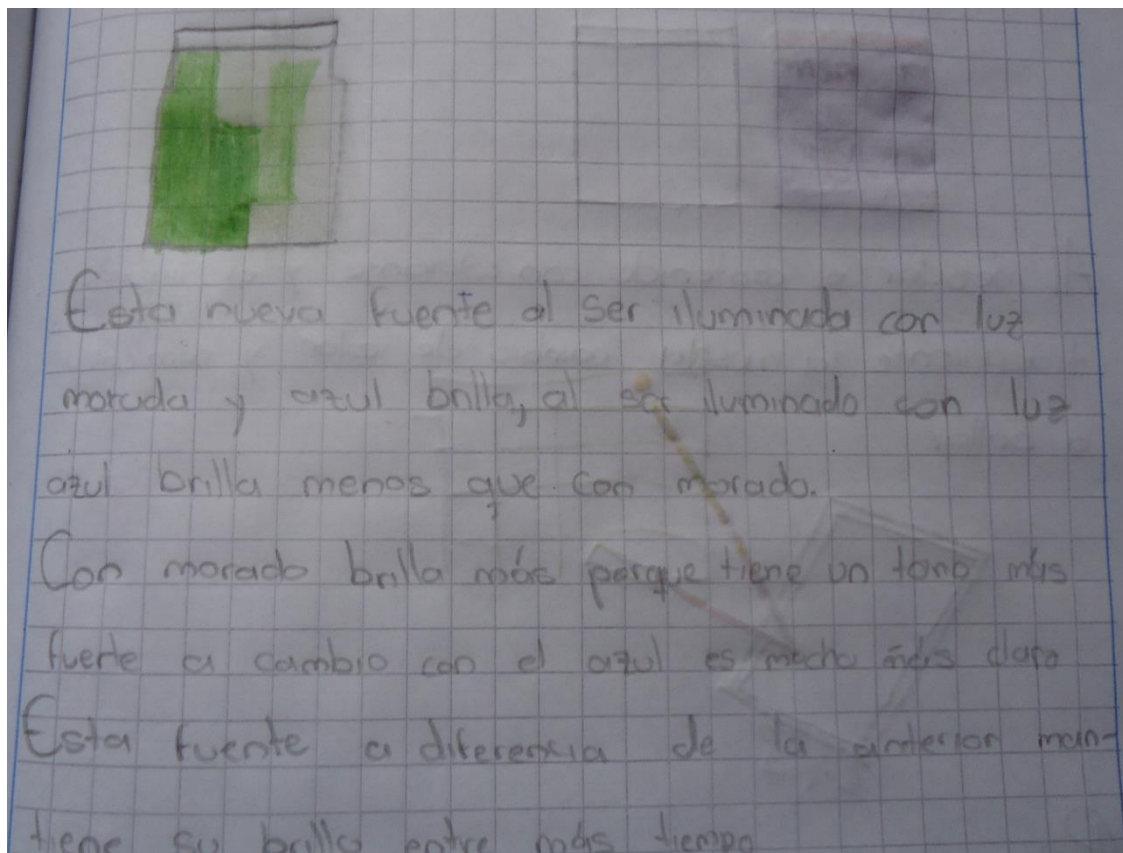 Esta nueva fuente al ser iluminada con luz
morada y azul brilla, al ser iluminado con luz
azul brilla menos que con morado.
Con morado brilla más porque tiene un tono más
fuerte a cambio con el azul es mucho más claro
Esta fuente a diferencia de la anterior man-
tiene su brillo entre más tiempo